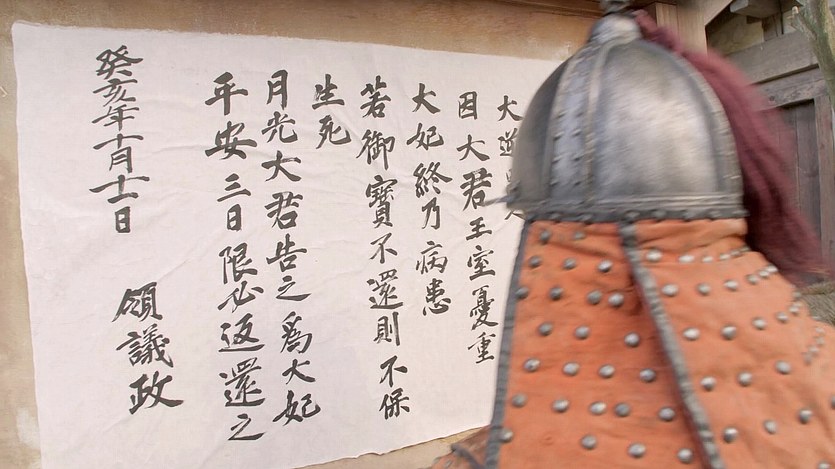 大逆
因大君王室憂重
大妃終乃病患
若御寶不還則不保
生死
月光大君告之爲大妃
平安三日限必返還之
癸亥年十月十一日
領議政